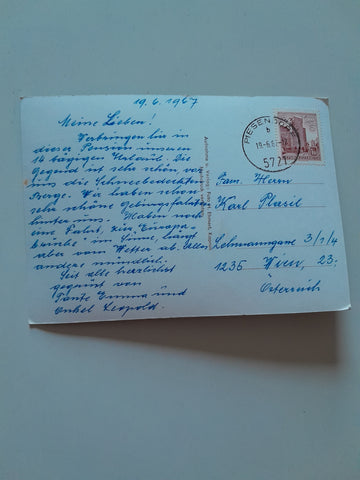 19. 6. 1967
Meine Lieben!
Verbringen hier in
dieser Pension unseren
14 tägigen Urlaub. Die
Gegend ist sehr schön, vor
uns die Schneebedeckten
Berge. Wir haben schon
sehr schöne Gebirgsfahrten
hinter uns. Haben noch
eine Fahrt, zur Europa-
brücke im Sinne, hängt
aber vom Wetter ab. Alles
andere mündlich.
Seit alle herzlichst
gegrüßt von
Tante Emma und
Onkel Leopold.
PIESENDORF
b
19.-6.67
5721
Fam. Herrn
Karl Plasil
Lehmanngasse 3/1/4
1235 Wien, 23;
Österreich